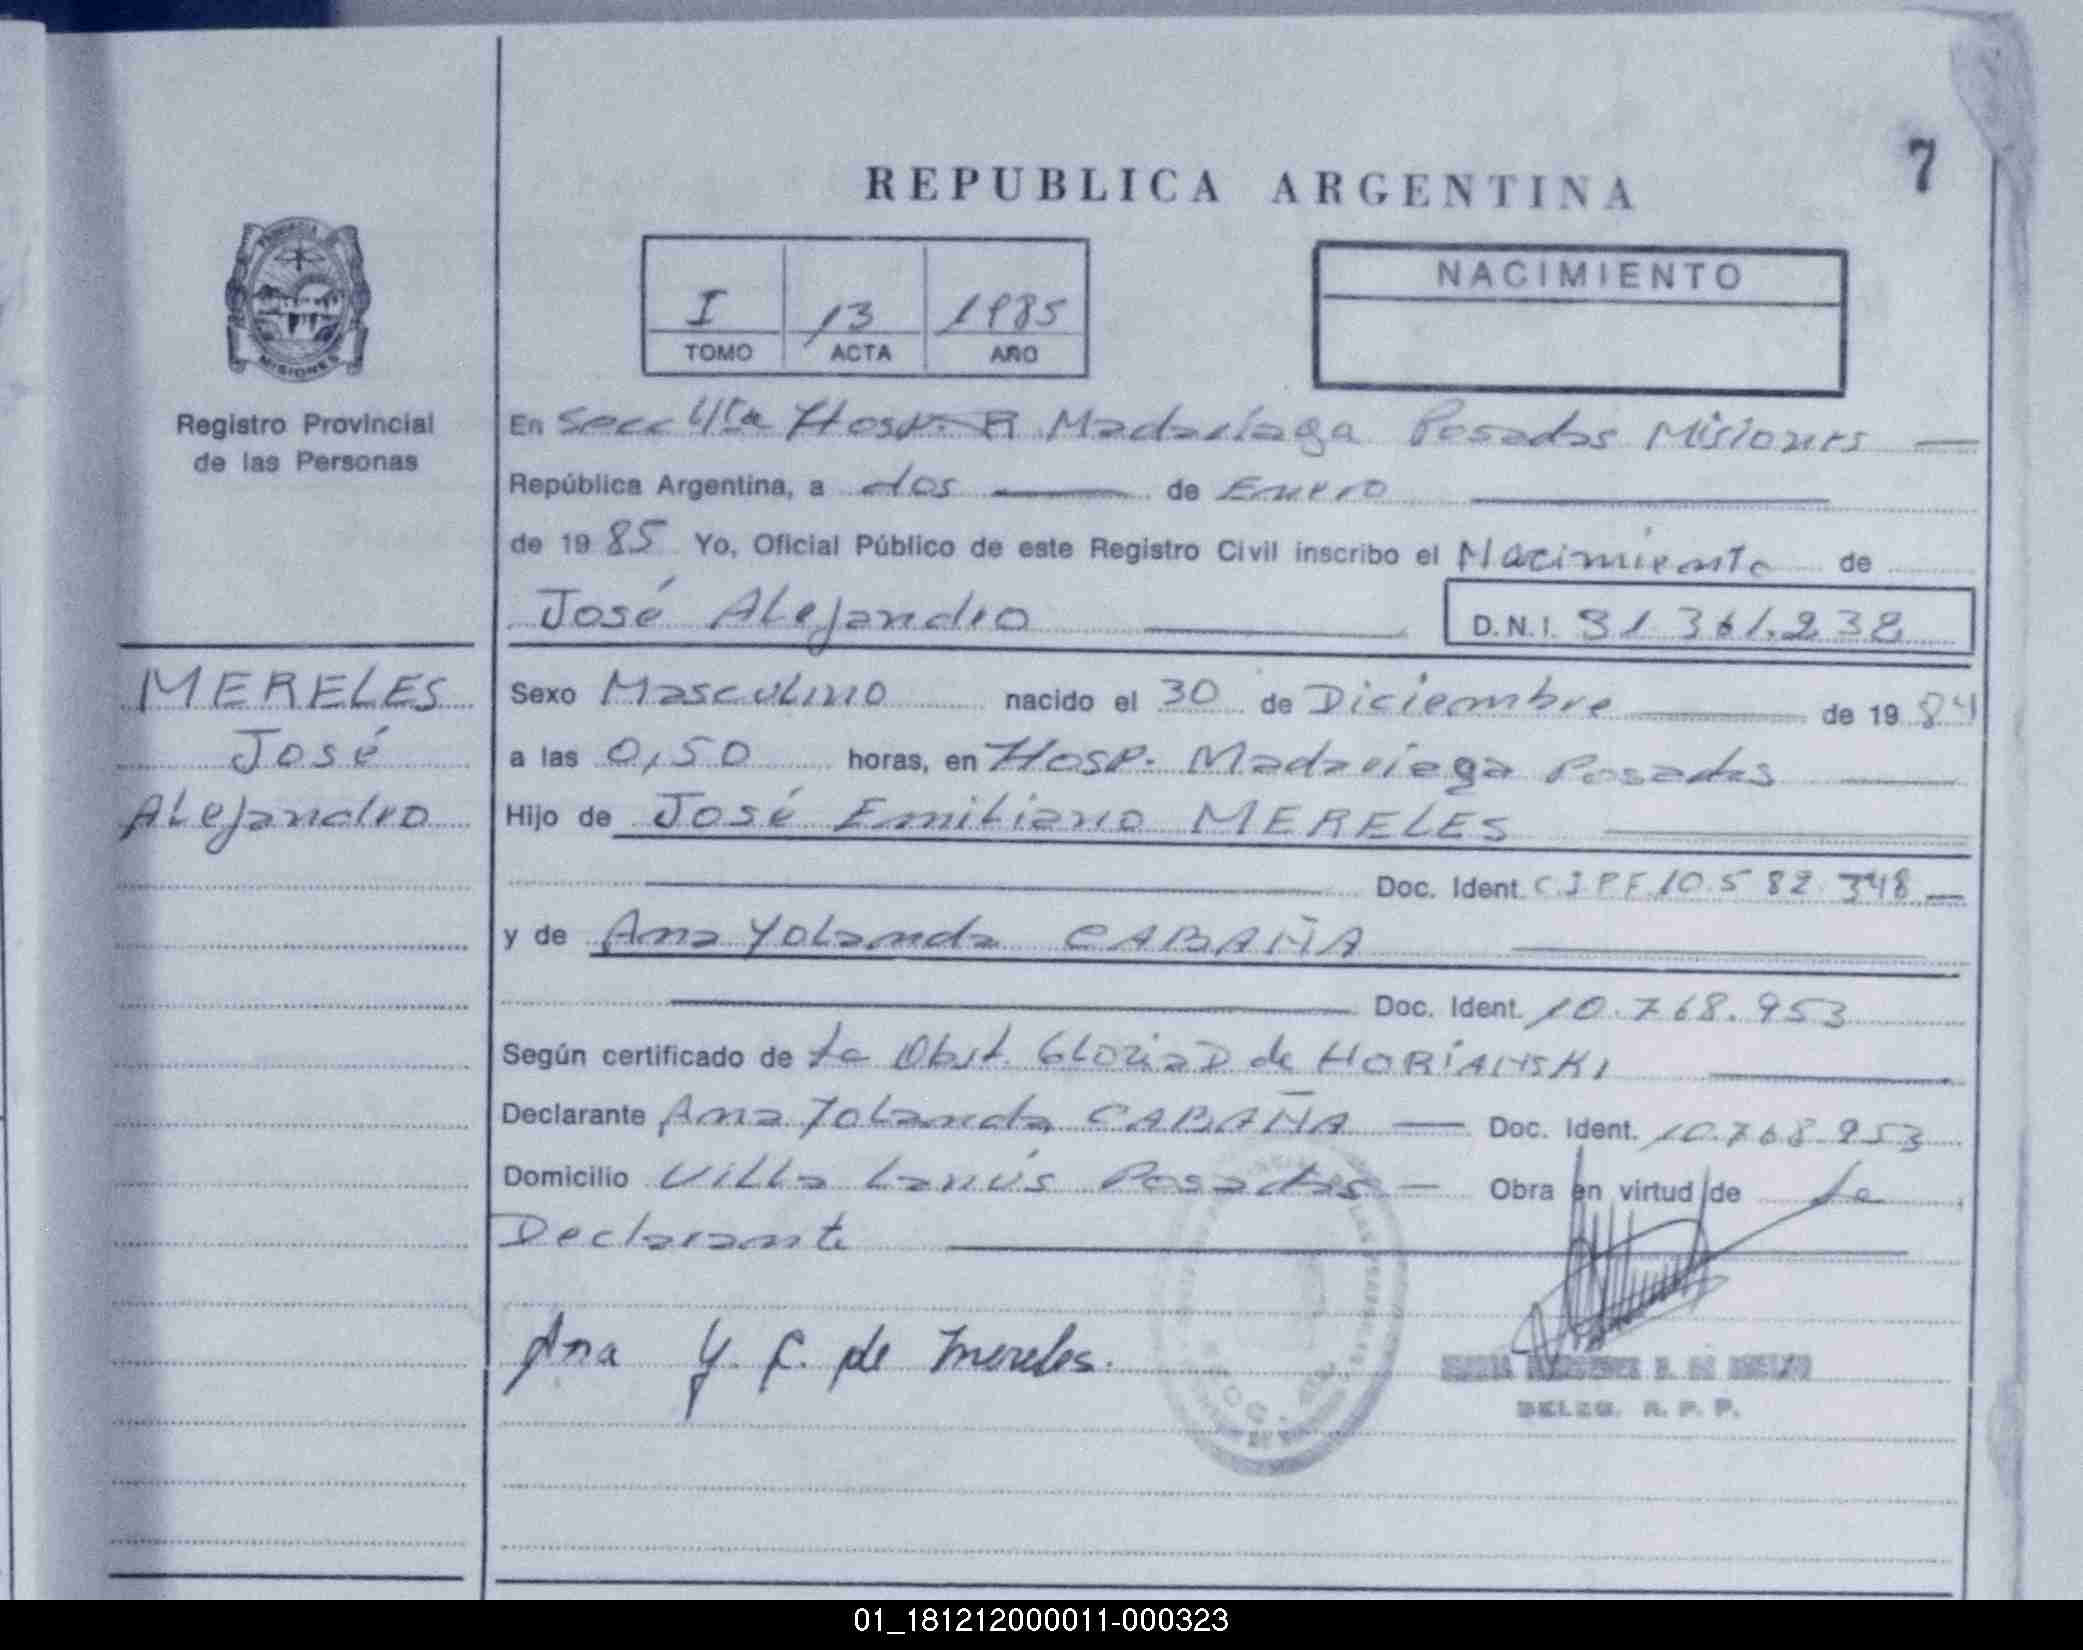 REPUBLICA ARGENTINA
7
PROVINCIA
MISIONES
Registro Provincial
de las Personas
I 13 1985
TOMO ACTA AÑO
NACIMIENTO
En Secc 4ta Hosp. R Madariaga Posadas Misiones
República Argentina, a dos de Enero
de 1985 Yo, Oficial Público de este Registro Civil inscribo el Nacimiento de
José Alejandro
D.N.I. 31.361.238
MERELES
José
Alejandro
Sexo Masculino nacido el 30 de Diciembre de 1984
a las 0,50 horas, en Hosp. Madariaga Posadas
Hijo de José Emiliano MERELES
Doc. Ident. C.I.P.F. 10.582.348
y de Ana Yolanda CABAÑA
Doc. Ident. 10.768.953
Según certificado de la Obst. Gloria D de HORIANSKI
Declarante Ana Yolanda CABAÑA Doc. Ident. 10.768.953
Domicilio Villa Lanús Posadas Obra en virtud de la
Declarante
Ana Y. C. de Mereles.
DELEG. R. P. P.
01_181212000011-000323